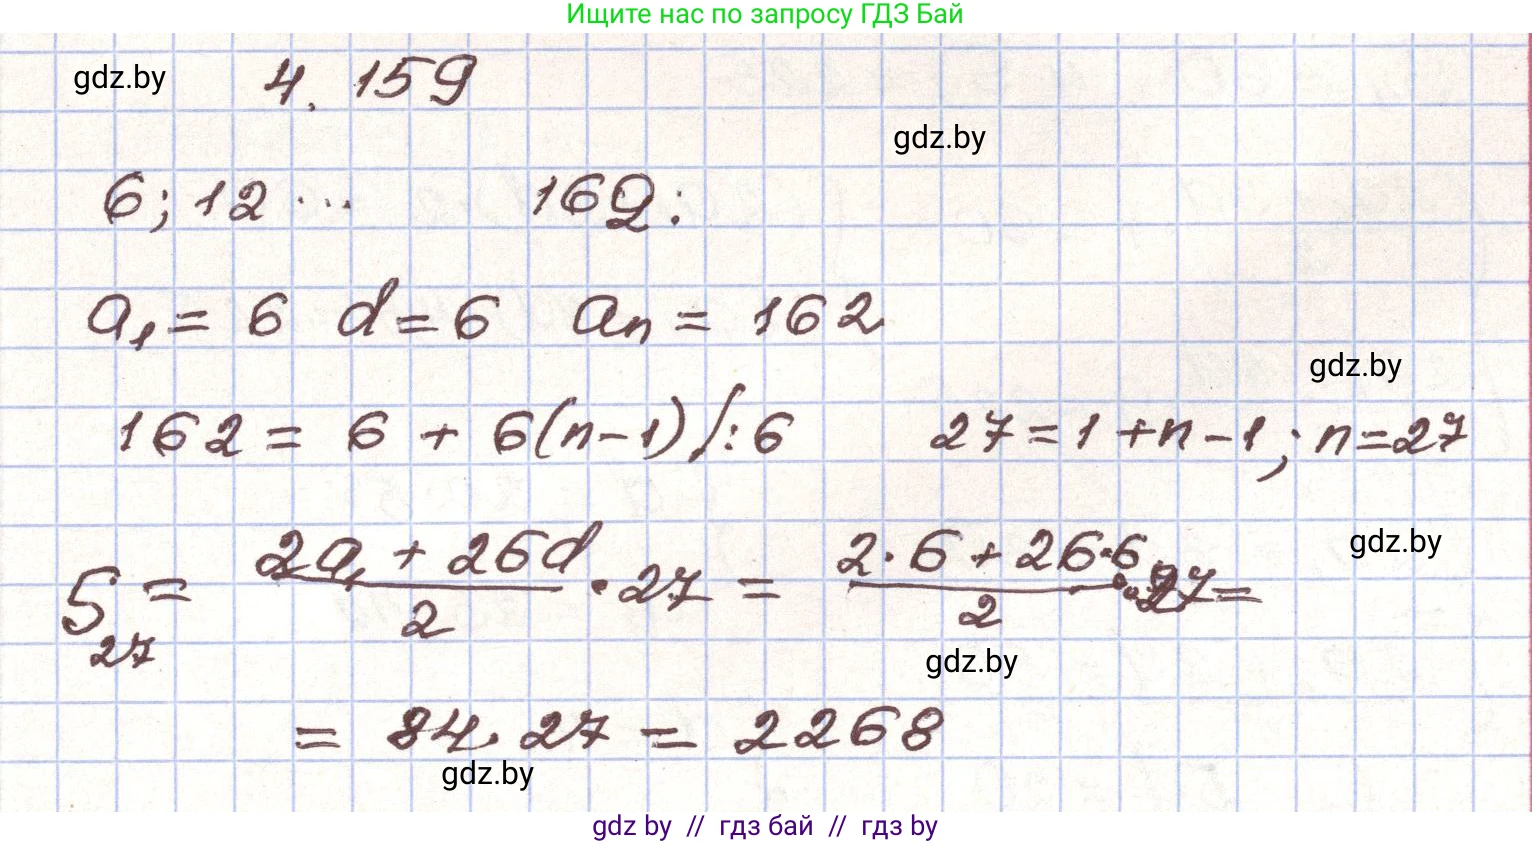 Ищите нас по запросу ГДЗ Бай
gdz.by 4.159
gdz.by
6; 12 ... 162:
a₁ = 6 d = 6 aₙ = 162
gdz.by
162 = 6 + 6(n-1) /:6 27 = 1 + n - 1; n = 27
S₂₇ = (2a₁ + 26d)/2 · 27 = (2·6 + 26·6)/2 · 27 =
gdz.by
gdz.by
= 84 · 27 = 2268
gdz.by
gdz by // гдз бай // гдз by